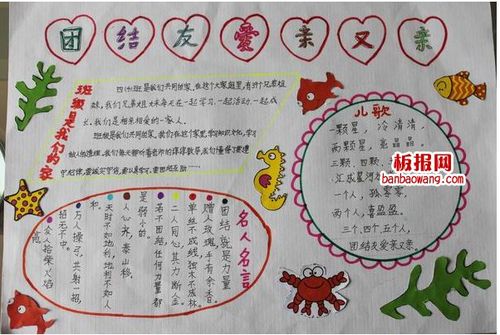 团结友爱亲又亲
班级是我们的家
四(1)班是我们共同的家,在这个大家庭里,有许多兄弟姐
妹,我们兄弟姐妹每天在一起学习,一起活动,一起成
长,我们是相亲相爱的一家人。
班级是我们共同的家,我们在这个家里,学习知识文化,学习
做人的道理。我们每天聆听着老师的谆谆教导,我们懂得了要遵
守纪律
儿歌
一颗星,冷清清,
两颗星,亮晶晶。
三颗、四颗
江成星河
一个人,孤零零,
两个人,喜盈盈。
三个、四个、五个人,
团结友爱亲又亲
板报网
banbaowang.com
名人名言
团结就是力量
赠人玫瑰,手有余香。
单丝不成线,独木不成林。
二人同心,其力断金。
若不团结,任何力量都
是弱小的。
人心齐,泰山移。
天时不如地利,地利不如人
和。
万人操弓,共射一招,
招无不中。
众人拾柴火焰
高